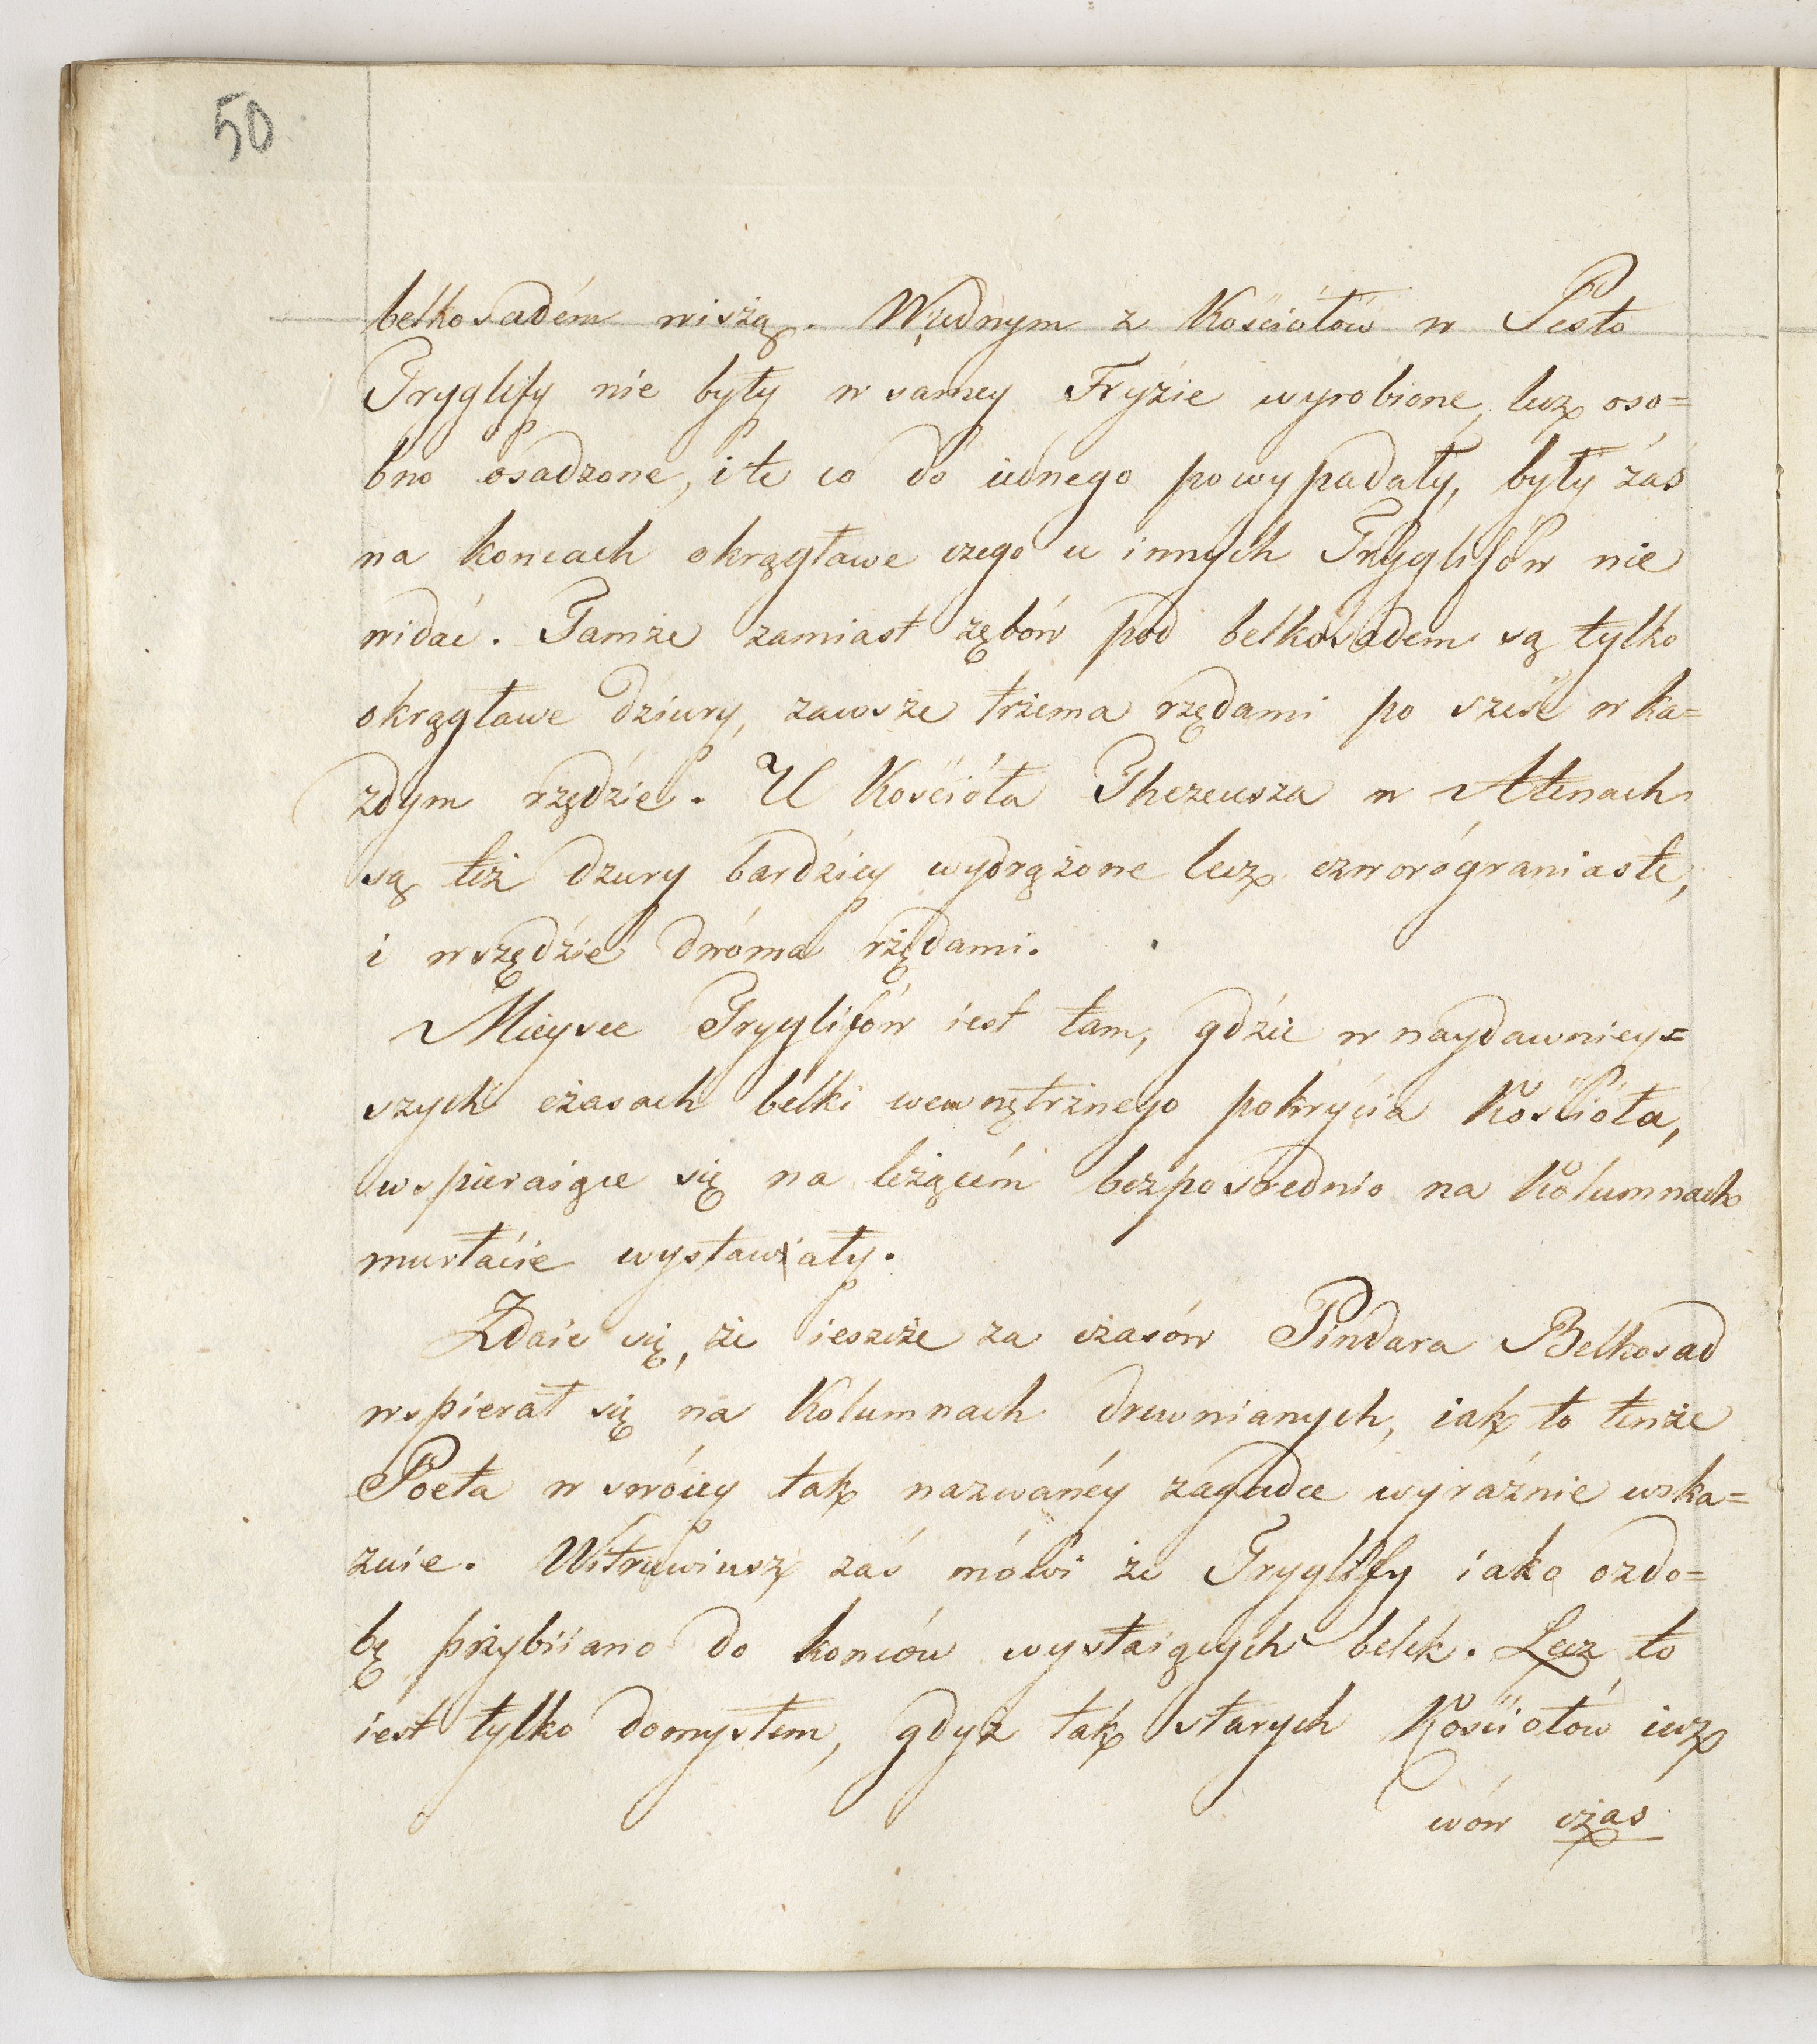 50
belkosadém wiszą. W iednym z Kościołów w Pesto
Tryglify nie były w samey Fryzie wyrobione, lecz oso=
bno osadzone, i te co do iednego powypadały, były zaś
na koncach okrągławe czego u innych Tryglifów nie
widać. Tamże zamiast zębów pod belkosadem są tylko
okrągławe dziury, zawsze trzema rzędami po sześć w ka=
zdym rzędzie. U Kościoła Thezeusza w Atenach
są też dzury bardziey wydrążone lecz czworograniaste,
i wszędzie dwóma rzędami.
Mieysce Tryglifów iest tam, gdzie w naydawniey=
szych czasach belki wewnętrznego pokrycia Kościoła,
wspieraiące się na leżącém bezposrednio na Kolumnach
murłacie wystawiały.
Zdaie się, że ieszcze za czasów Pindara Belkosad
wspierał się na Kolumnach drewnianych, iak to tenże
Poeta w swóiey tak nazwanéy zagadce wyraźnie wska=
zuie. Witruwiusz zaś mówi że Tryglify iako ozdo=
bę przybiiano do konców wystaiących belek. Lecz to
iest tylko domysłem, gdyz tak starych Kościołów iesz
wów czas